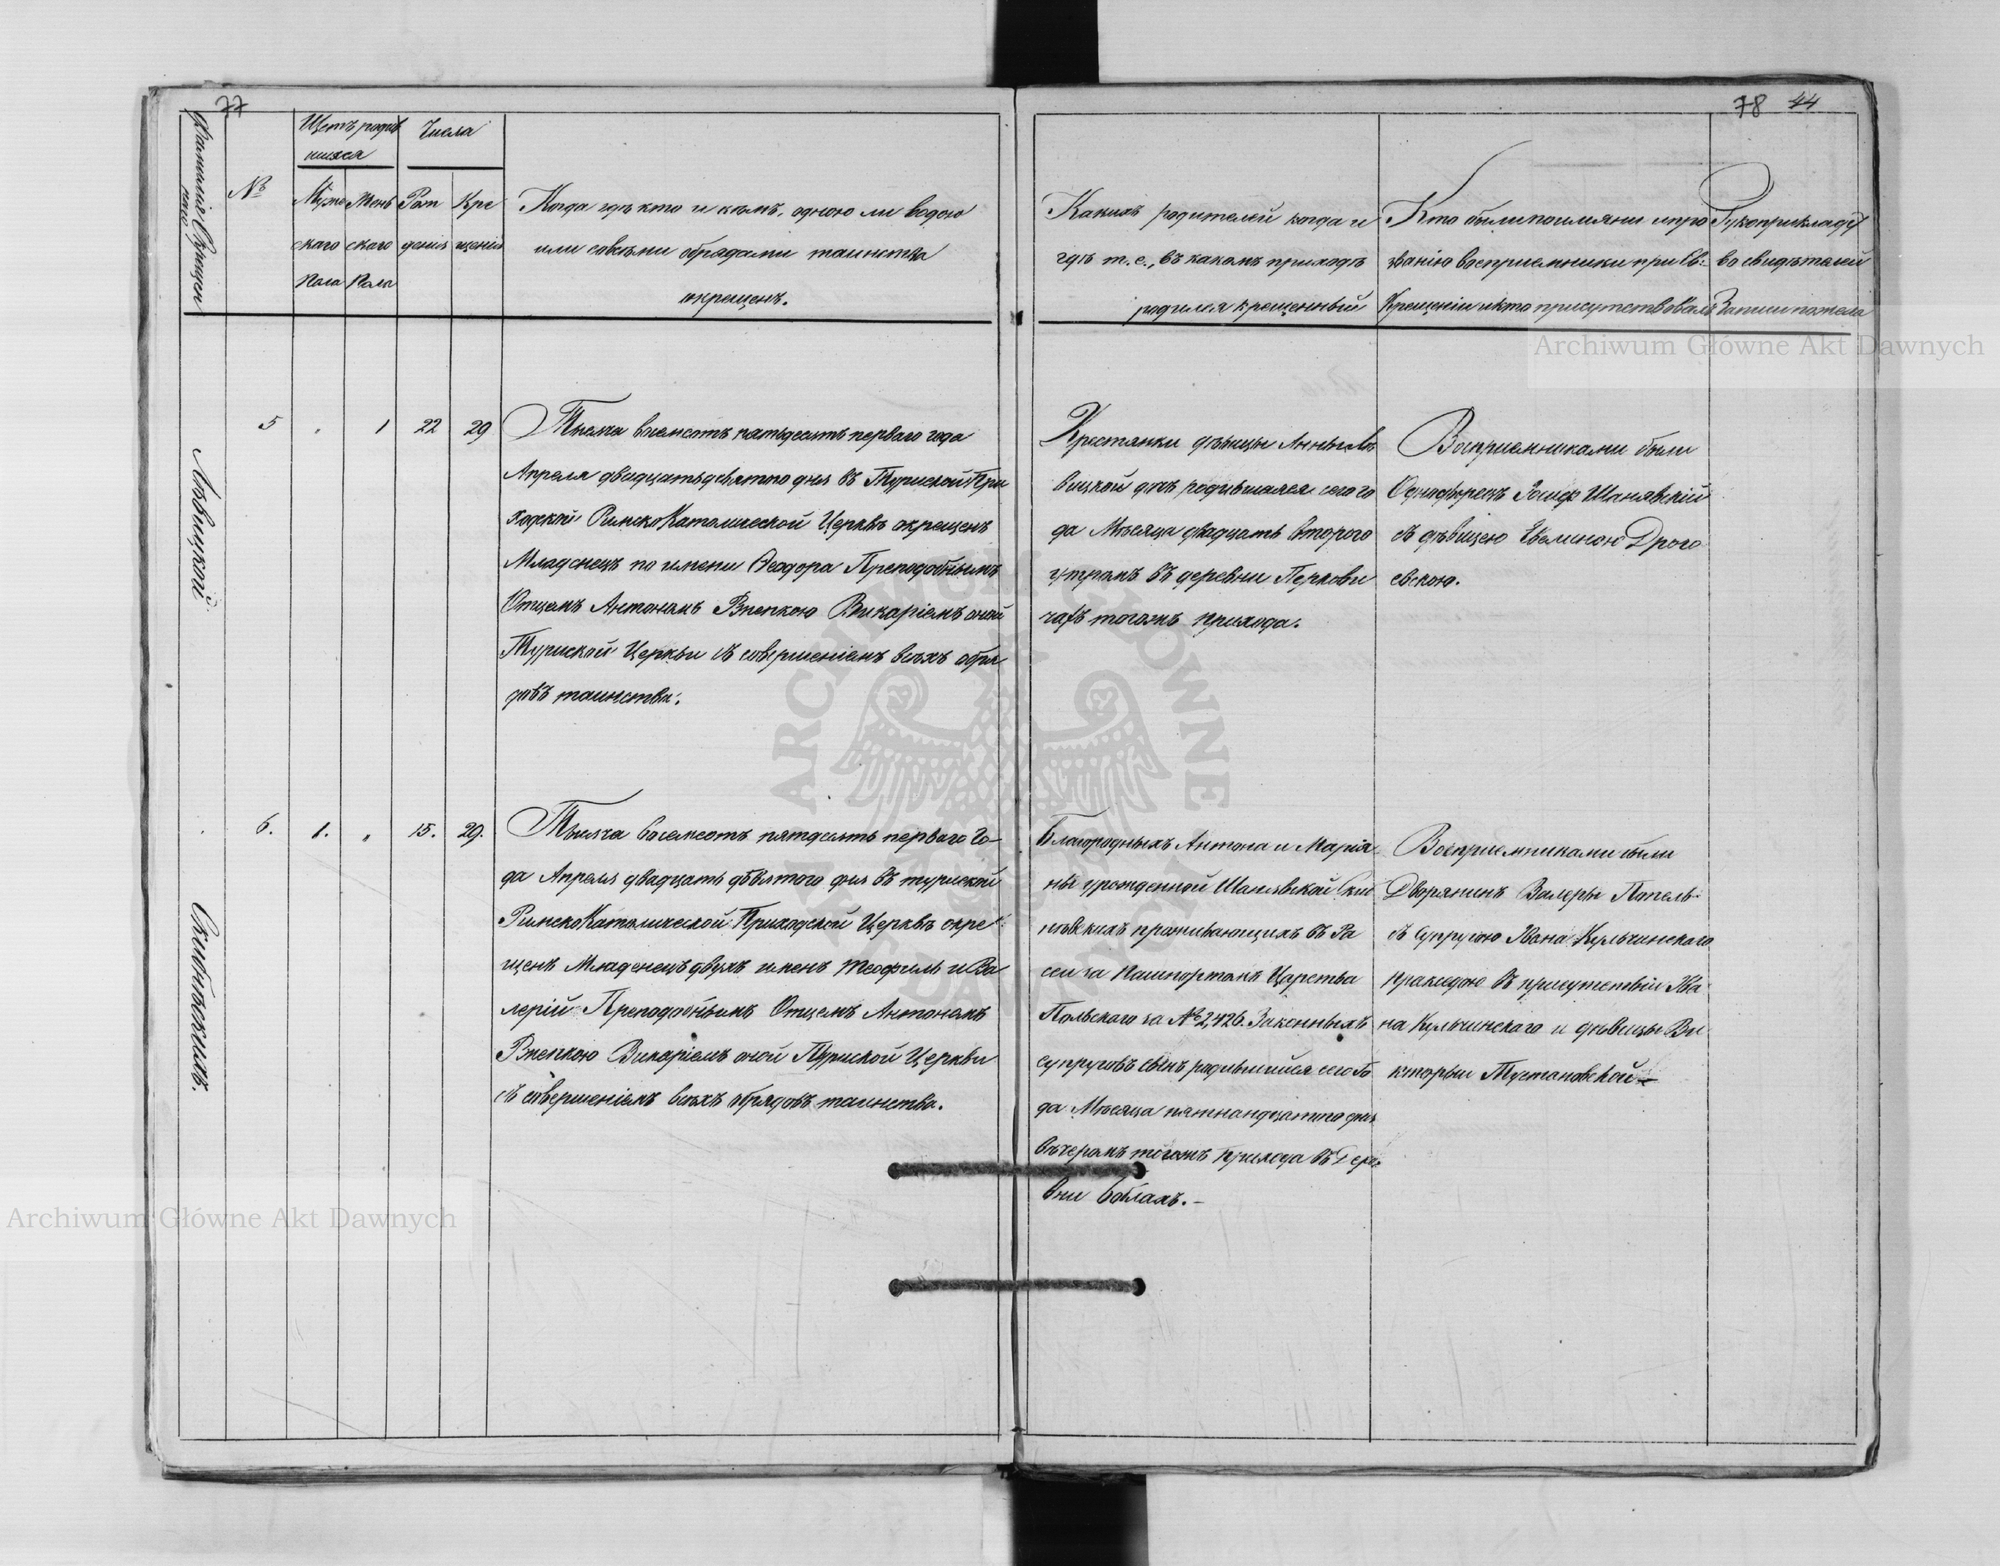 77
Фамилія Окрещен
ного
№
Щетъ родив
шихся
Муже
скаго
Пола
Жень
скаго
Пола
Числа
Рож
денія
Кре
щенія
Когда гдѣ кто и кѣмъ, одною ли водою
или совсѣми обрядами таинства
окрещенъ.
Лѣвицкой
5
1
22
29
Тысяча восемсотъ пятьдесятъ перваго года
Апреля двадцатьдевятого дня въ Турійской При
ходской РимскоКатолической Церквѣ окрещенъ
Младенецъ по имени Ѳеодора Преподобнымъ
Отцемъ Антономъ Викаріемъ оной
Турійской Церкви съ совершеніемъ всѣхъ обря
довъ таинства.
6.
1.
15.
29.
Тысяча восемсотъ пятдесятъ перваго го-
да Апреля двадцать девятого дня въ турійской
РимскоКатолической Приходской Церквѣ окре
щенъ Младенецъ двухъ именъ Теофиль и Ва
лерій Преподобнымъ Отцемъ Антономъ
Викаріемъ оной Турійской Церкви
съ совершеніемъ всѣхъ обрядовъ таинства.
78 44
Какихъ родителей когда и
гдѣ т.е., въ какомъ приходѣ
родился крещенный
Кто были поимяни и про
званію восприемники при Св:
Крещеніи и кто присутствовалъ
Рукоприкладс
во свидѣтелей
Записи по
Крестянки дѣвицы Анны Лѣ
вицкой дочь родившаяся сего го
да Мѣсяца двадцать второго
утромъ въ деревни Перкови
чахъ тогожъ прихода.
Восприемниками были
Однодворецъ Іосиф Шанявскій
съ дѣвицею Евелиною Дрого
евскою.
Благородныхъ Антона и Марія
ны урожденной Шанявской
проживающихъ въ Ра
сеи за Пашпортомъ Царства
Польскаго за № 2,426. Законныхъ
супруговъ сынъ родившійся сего Го
да Мѣсяца пятнандцатого дня
Вѣчеромъ тогожъ прихода въ Дере
вни Боблахъ.-
Восприемниками были
Дворянинъ Валеры Попель:
съ Супругою Ивана Кульчинскаго
Праксѣдою въ присутствіи Ива
на Кульчинскаго и дѣвицы Ви
кторыи
Archiwum Główne Akt Dawnych
Archiwum Główne Akt Dawnych